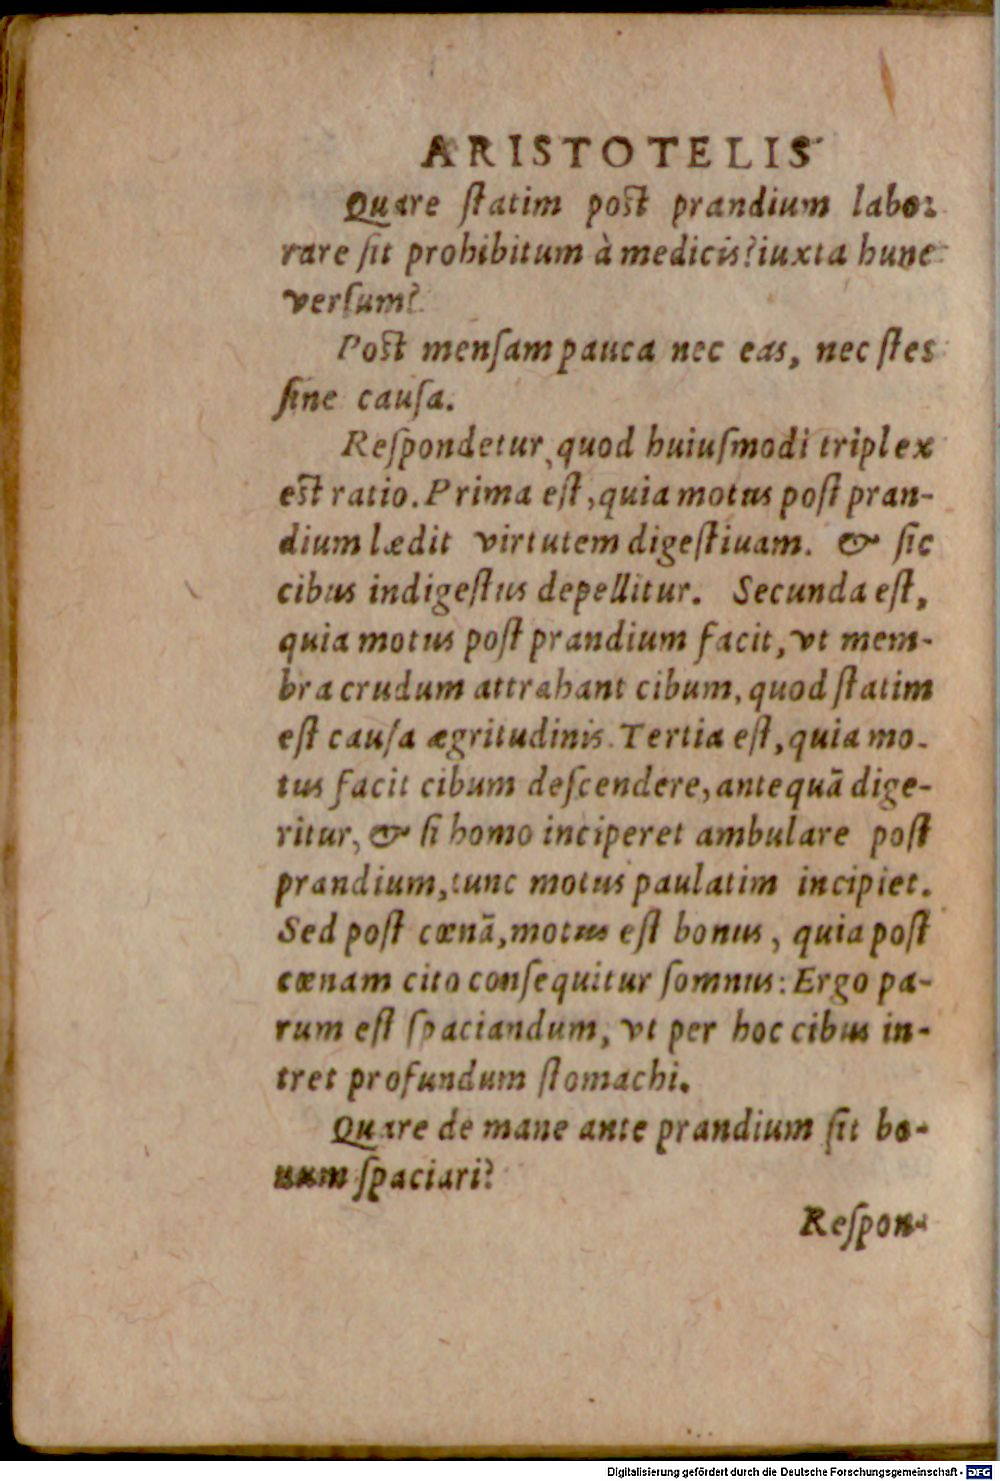 ARISTOTELIS
Quare ſtatim poſt prandium labor
rare ſit prohibitum à medicis? iuxta hunc
verſum?
Poſt menſam pauca nec eas, nec ſtes
ſine cauſa.
Reſpondetur, quod huiuſmodi triplex
eſt ratio. Prima eſt, quia motus poſt pran-
dium lædit virtutem digeſtiuam. & ſic
cibus indigeſtus depellitur. Secunda eſt,
quia motus poſt prandium facit, vt mem-
bra crudum attrahant cibum, quod ſtatim
eſt cauſa ægritudinis. Tertia eſt, quia mo-
tus facit cibum deſcendere, antequã dige-
ritur, & ſi homo inciperet ambulare poſt
prandium, tunc motus paulatim incipiet.
Sed poſt cœnã, motus eſt bonus, quia poſt
cœnam cito conſequitur ſomnus: Ergo pa-
rum eſt ſpaciandum, vt per hoc cibus in-
tret profundum ſtomachi.
Quare de mane ante prandium ſit bo-
num ſpaciari?
Reſpon-
Digitalisierung gefördert durch die Deutsche Forschungsgemeinschaft - DFG